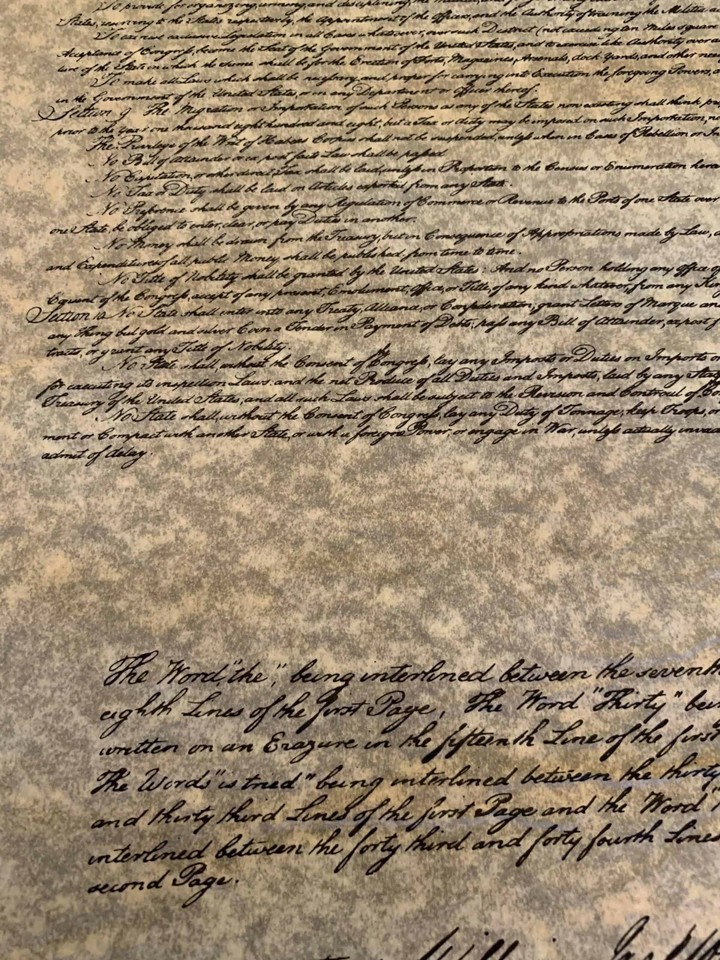 To provide for organizing, arming, and disciplining, the Militia, and for
States, reserving to the States respectively, the Appointment of the Officers, and the Authority of training the Militia
To exercise exclusive Legislation in all Cases whatsoever, over such District (not exceeding ten Miles square
Acceptance of Congress, become the Seat of the Government of the United States, and to exercise like Authority over
of the State in which the Same shall be, for the Erection of Forts, Magazines, Arsenals, dock-Yards, and other
To make all Laws which shall be necessary and proper for carrying into Execution the foregoing Powers,
in the Government of the United States, or in any Department or Officer thereof.
Section 9 The Migration or Importation of such Persons as any of the States now existing shall think
prior to the Year one thousand eight hundred and eight, but a Tax or duty may be imposed on such Importation,
The Privilege of the Writ of Habeas Corpus shall not be suspended, unless when in Cases of Rebellion or
No Bill of Attainder or ex post facto Law shall be passed
No Capitation, or other direct, Tax shall be laid, unless in Proportion to the Census or Enumeration
No Tax or Duty shall be laid on Articles exported from any State.
No Preference shall be given by any Regulation of Commerce or Revenue to the Ports of one State over
one State, be obliged to enter, clear, or pay Duties in another.
No Money shall be drawn from the Treasury, but in Consequence of Appropriations made by Law,
and Expenditures of all public Money shall be published from time to time.
No Title of Nobility shall be granted by the United States: And no Person holding any Office of
Consent of the Congress, accept of any present, Emolument, Office, or Title, of any kind whatever, from any
Section 10 No State shall enter into any Treaty, Alliance, or Confederation; grant Letters of Marque
any Thing but gold and silver Coin a Tender in Payment of Debts; pass any Bill of Attainder, ex post
tracts, or grant any Title of Nobility.
No State shall, without the Consent of Congress, lay any Imposts or Duties on Imports or
for executing its inspection Laws: and the net Produce of all Duties and Imposts, laid by any State
Treasury of the United States; and all such Laws shall be subject to the Revision and Controul of
No State shall, without the Consent of Congress, lay any Duty of Tonnage, keep Troops, or
ment or Compact with another State, or with a foreign Power, or engage in War, unless actually
admit of delay.
The Word, "the", being interlined between the seventh
eighth Lines of the first Page, The Word "Thirty" being
written on an Erazure in the fifteenth Line of the first
The Words "is tried" being interlined between the thirty
and thirty third Lines of the first Page and the Word
interlined between the forty third and forty fourth Lines
second Page.